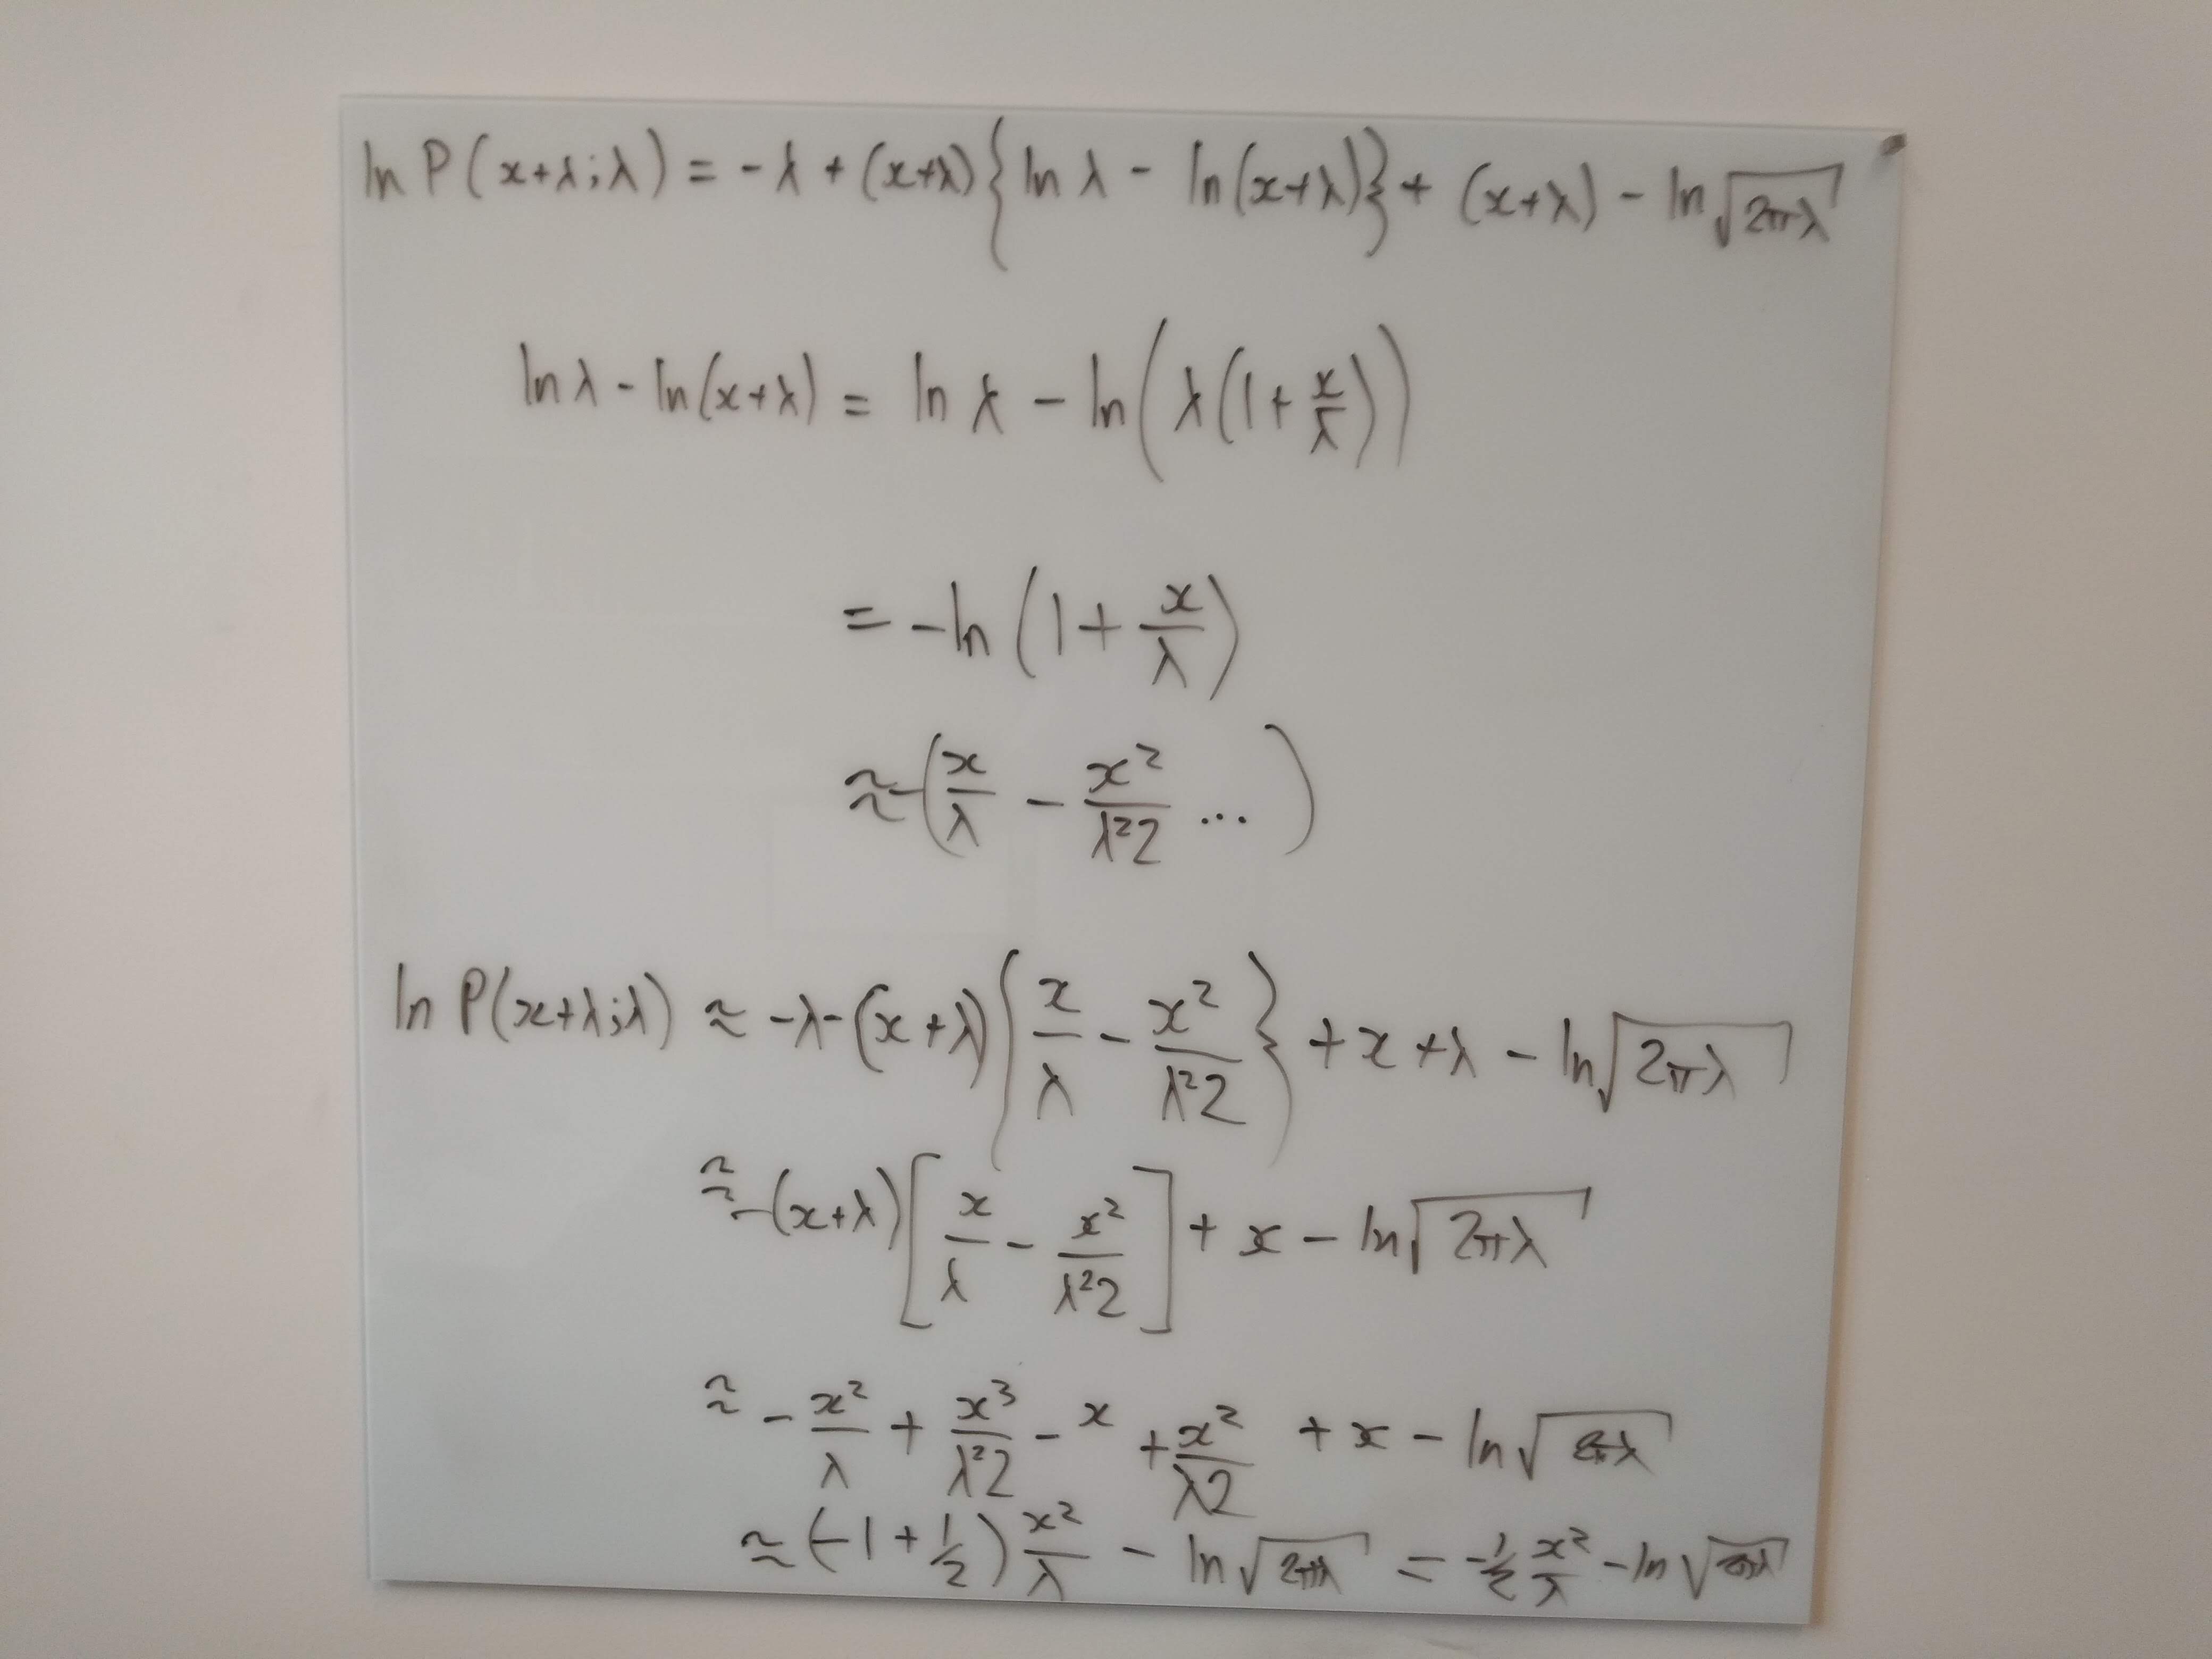 ln P(x+λ;λ) = -λ + (x+λ){ln λ - ln(x+λ)} + (x+λ) - ln√(2πλ)
lnλ - ln(x+λ) = ln λ - ln(λ(1+x/λ))
= -ln(1+x/λ)
≈ -(x/λ - x²/λ²2 ...)
ln P(x+λ;λ) ≈ -λ-(x+λ){x/λ - x²/λ²2} + x+λ - ln√(2πλ)
≈ -(x+λ)[x/λ - x²/λ²2] + x - ln√(2πλ)
≈ - x²/λ + x³/λ²2 - x + x²/λ2 + x - ln√(2πλ)
≈ (-1+1/2) x²/λ - ln√(2πλ) = -1/2 x²/λ - ln√(2πλ)